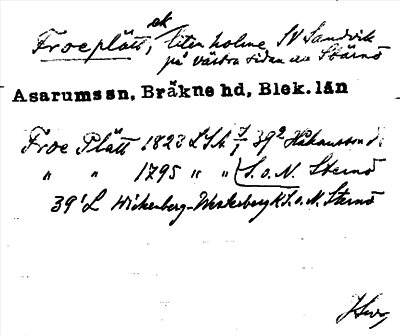 Froeplätt, ek liten holme SV Sandvik
på västra sidan av Stärnö
Asarums sn, Bräkne hd, Blek. län
Froe Plätt 1823 LSA 39² Håkansson
" " 1795 " " S. o. N. Sternö
39' L Wickenberg-Westerberg K S. o. N. Sternö